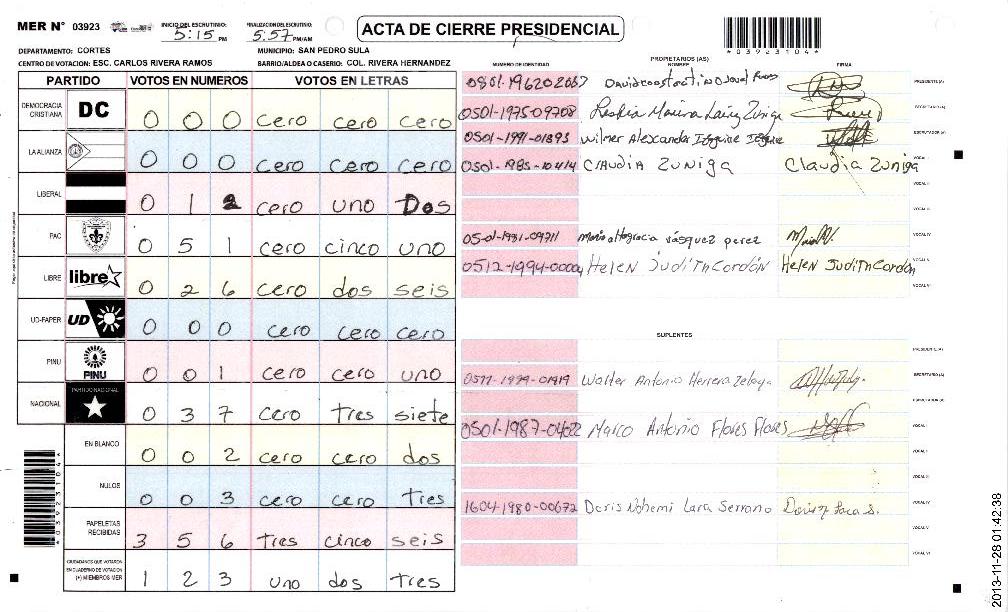 MER N° 03923 INICIO DEL ESCRUTINIO: 5:15 PM FINALIZACION ESCRUTINIO: 5:57 PM/AM ACTA DE CIERRE PRESIDENCIAL
*03923104*
DEPARTAMENTO: CORTES MUNICIPIO: SAN PEDRO SULA
CENTRO DE VOTACION: ESC. CARLOS RIVERA RAMOS BARRIO/ALDEA O CASERIO: COL. RIVERA HERNANDEZ
PARTIDO VOTOS EN NUMEROS VOTOS EN LETRAS
DEMOCRACIA CRISTIANA DC 0 0 0 cero cero cero
LA ALIANZA 0 0 0 cero cero cero
LIBERAL 0 1 2 cero uno Dos
PAC 0 5 1 cero cinco uno
LIBRE libre 0 2 6 cero dos seis
UD-FAPER UD 0 0 0 cero cero cero
PINU PINU 0 0 1 cero cero uno
NACIONAL PARTIDO NACIONAL 0 3 7 cero tres siete
EN BLANCO 0 0 2 cero cero dos
NULOS 0 0 3 cero cero tres
PAPELETAS RECIBIDAS 3 5 6 tres cinco seis
CIUDADANOS QUE VOTARON EN CUADERNO DE VOTACION (+) MIEMBROS MER 1 2 3 uno dos tres
*03923104*
PROPIETARIOS (AS)
NUMERO DE IDENTIDAD NOMBRE FIRMA
0801-1962 PRESIDENTE (A)
0501-1975-09708 Zuniga SECRETARIO (A)
0501-1991-01893 Wilmer Alexander ESCRUTADOR (A)
0501-1985-10414 CLAUDIA ZUNIGA Claudia Zuniga VOCAL I
VOCAL II
VOCAL III
05-01-1981-09711 Maria altagracia vásquez perez VOCAL IV
0512-1994-0000 Helen Judith Cordón Helen Judith Cordón VOCAL V
VOCAL VI
SUPLENTES
PRESIDENTE (A)
1999-01919 Walter Antonio Herrera Zelaya SECRETARIO (A)
ESCRUTADOR (A)
0501-1987-0402 Marco Antonio Flores Flores VOCAL I
VOCAL II
VOCAL III
1604-1980-00672 Doris Nohemi Lara Serrano VOCAL IV
VOCAL V
VOCAL VI
2013-11-28 01:42:38